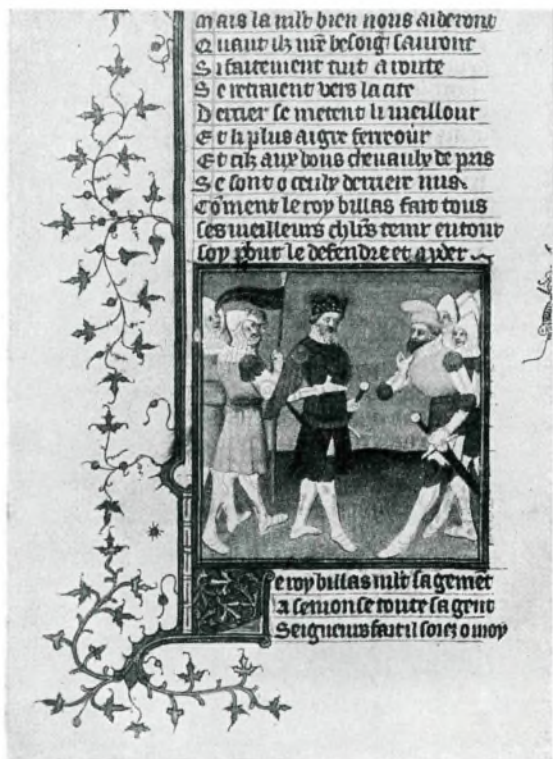 mais la nuit bien nous aideront
Quant ilz nre besoig sauront
Si faitement tuit a route
Se retraient vers la cite
Derrier se metent li meillour
Et li plus aigre fereour
Et cilz aux bons chevaulx de pris
Se sont o ceulx derrier mis
Coment le roy billas fait tous
ses meilleurs chlrs tenir entour
soy pour le defendre et ayder
Le roy billas mlt sagemet
A semonse toute sa gent
Seigneurs fait il soiez o moy